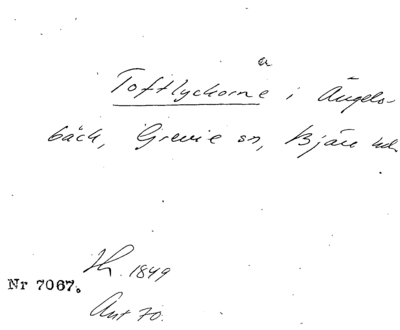 a
Toftlyckorne i Ängels-
bäck, Grevie sn, Bjäre hd.
1849
Nr 7067.
Ant 70.